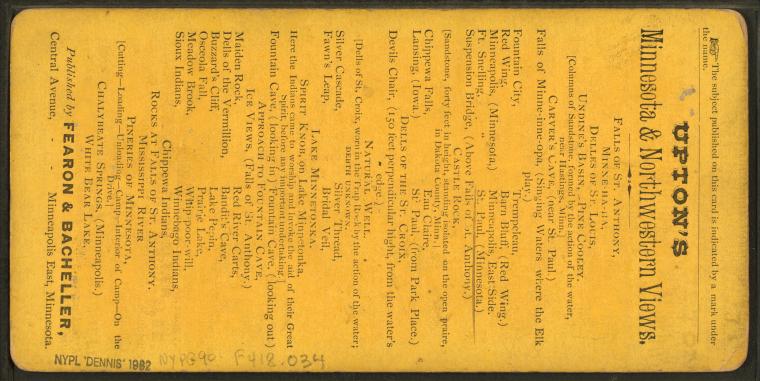 ☞ The subject published on this card is indicated by a mark under
the name.
UPTON'S
Minnesota & Northwestern Views.
FALLS OF ST. ANTHONY,
MINNE-HA-HA,
DELLES OF ST. LOUIS,
UNDINE'S BASIN, PINE COOLEY.
[Columns of Sandstone, formed by the action of the water,
near Hastings, Minn.
CARVER'S CAVE, (near St. Paul.)
Falls of Minne-inne-opa, (Singing Waters where the Elk
play.)
Fountain City, Trempeleau,
Red Wing, Barn Bluff, (Red Wing.)
Minneapolis, (Minnesota.) Minneapolis, East Side.
Ft. Snelling. " St. Paul, (Minnesota.)
Suspension Bridge, (Above Falls of St. Anthony.)
CASTLE ROCK,
(Sandstone, forty feet in height, standing isolated on the open praire,
in Dakota Co., Minn.
Chippewa Falls, Eau Claire,
Lansing, (Iowa.) St. Paul, (from Park Place.)
DELLS OF THE ST. CROIX,
Devils Chair, (150 feet perpendicular hight, from the water's
edge.)
NATURE'S WELL.
[Dells of St. Croix, worn in the Trap Rock by the action of the water;
DEPTH UNKNOWN.
Silver Cascade, Silver Thread,
Fawn's Leap, Bridal Veil,
LAKE MINNETONKA.
SPIRIT KNOB, on Lake Minnetonka,
Here the Indians came to worship and invoke the aid of their Great
Spirit, before any important undertaking
Fountain Cave, (looking in) Fountain Cave, (looking out)
APPROACH TO FOUNTAIN CAVE,
ICE VIEWS, (Falls of St. Anthony.)
Maiden Rock, Red River Carts,
Dells of the Vermillion, Credit's Cave,
Buzzard's Cliff, Lake Pepin,
Osceola Fall, Prairie Lake,
Meadow Brook, Whip poor will,
Sioux Indians, Winnebago Indians,
Chippewa Indians,
ROCKS AT FALLS OF ST. ANTHONY.
MISSISSIPPI RIVER,
PINERIES OF MINNESOTA,
[Cutting—Loading—Unloading—Camp—Interior of Camp—On the
Drive.]
CHALYBEATE SPRINGS, (Minneapolis.)
WHITE BEAR LAKE,
Published by FEARON & BACHELLER,
Central Avenue, - - Minneapolis East, Minnesota.
NYPL 'DENNIS' 1982
NYPG90-F418.034